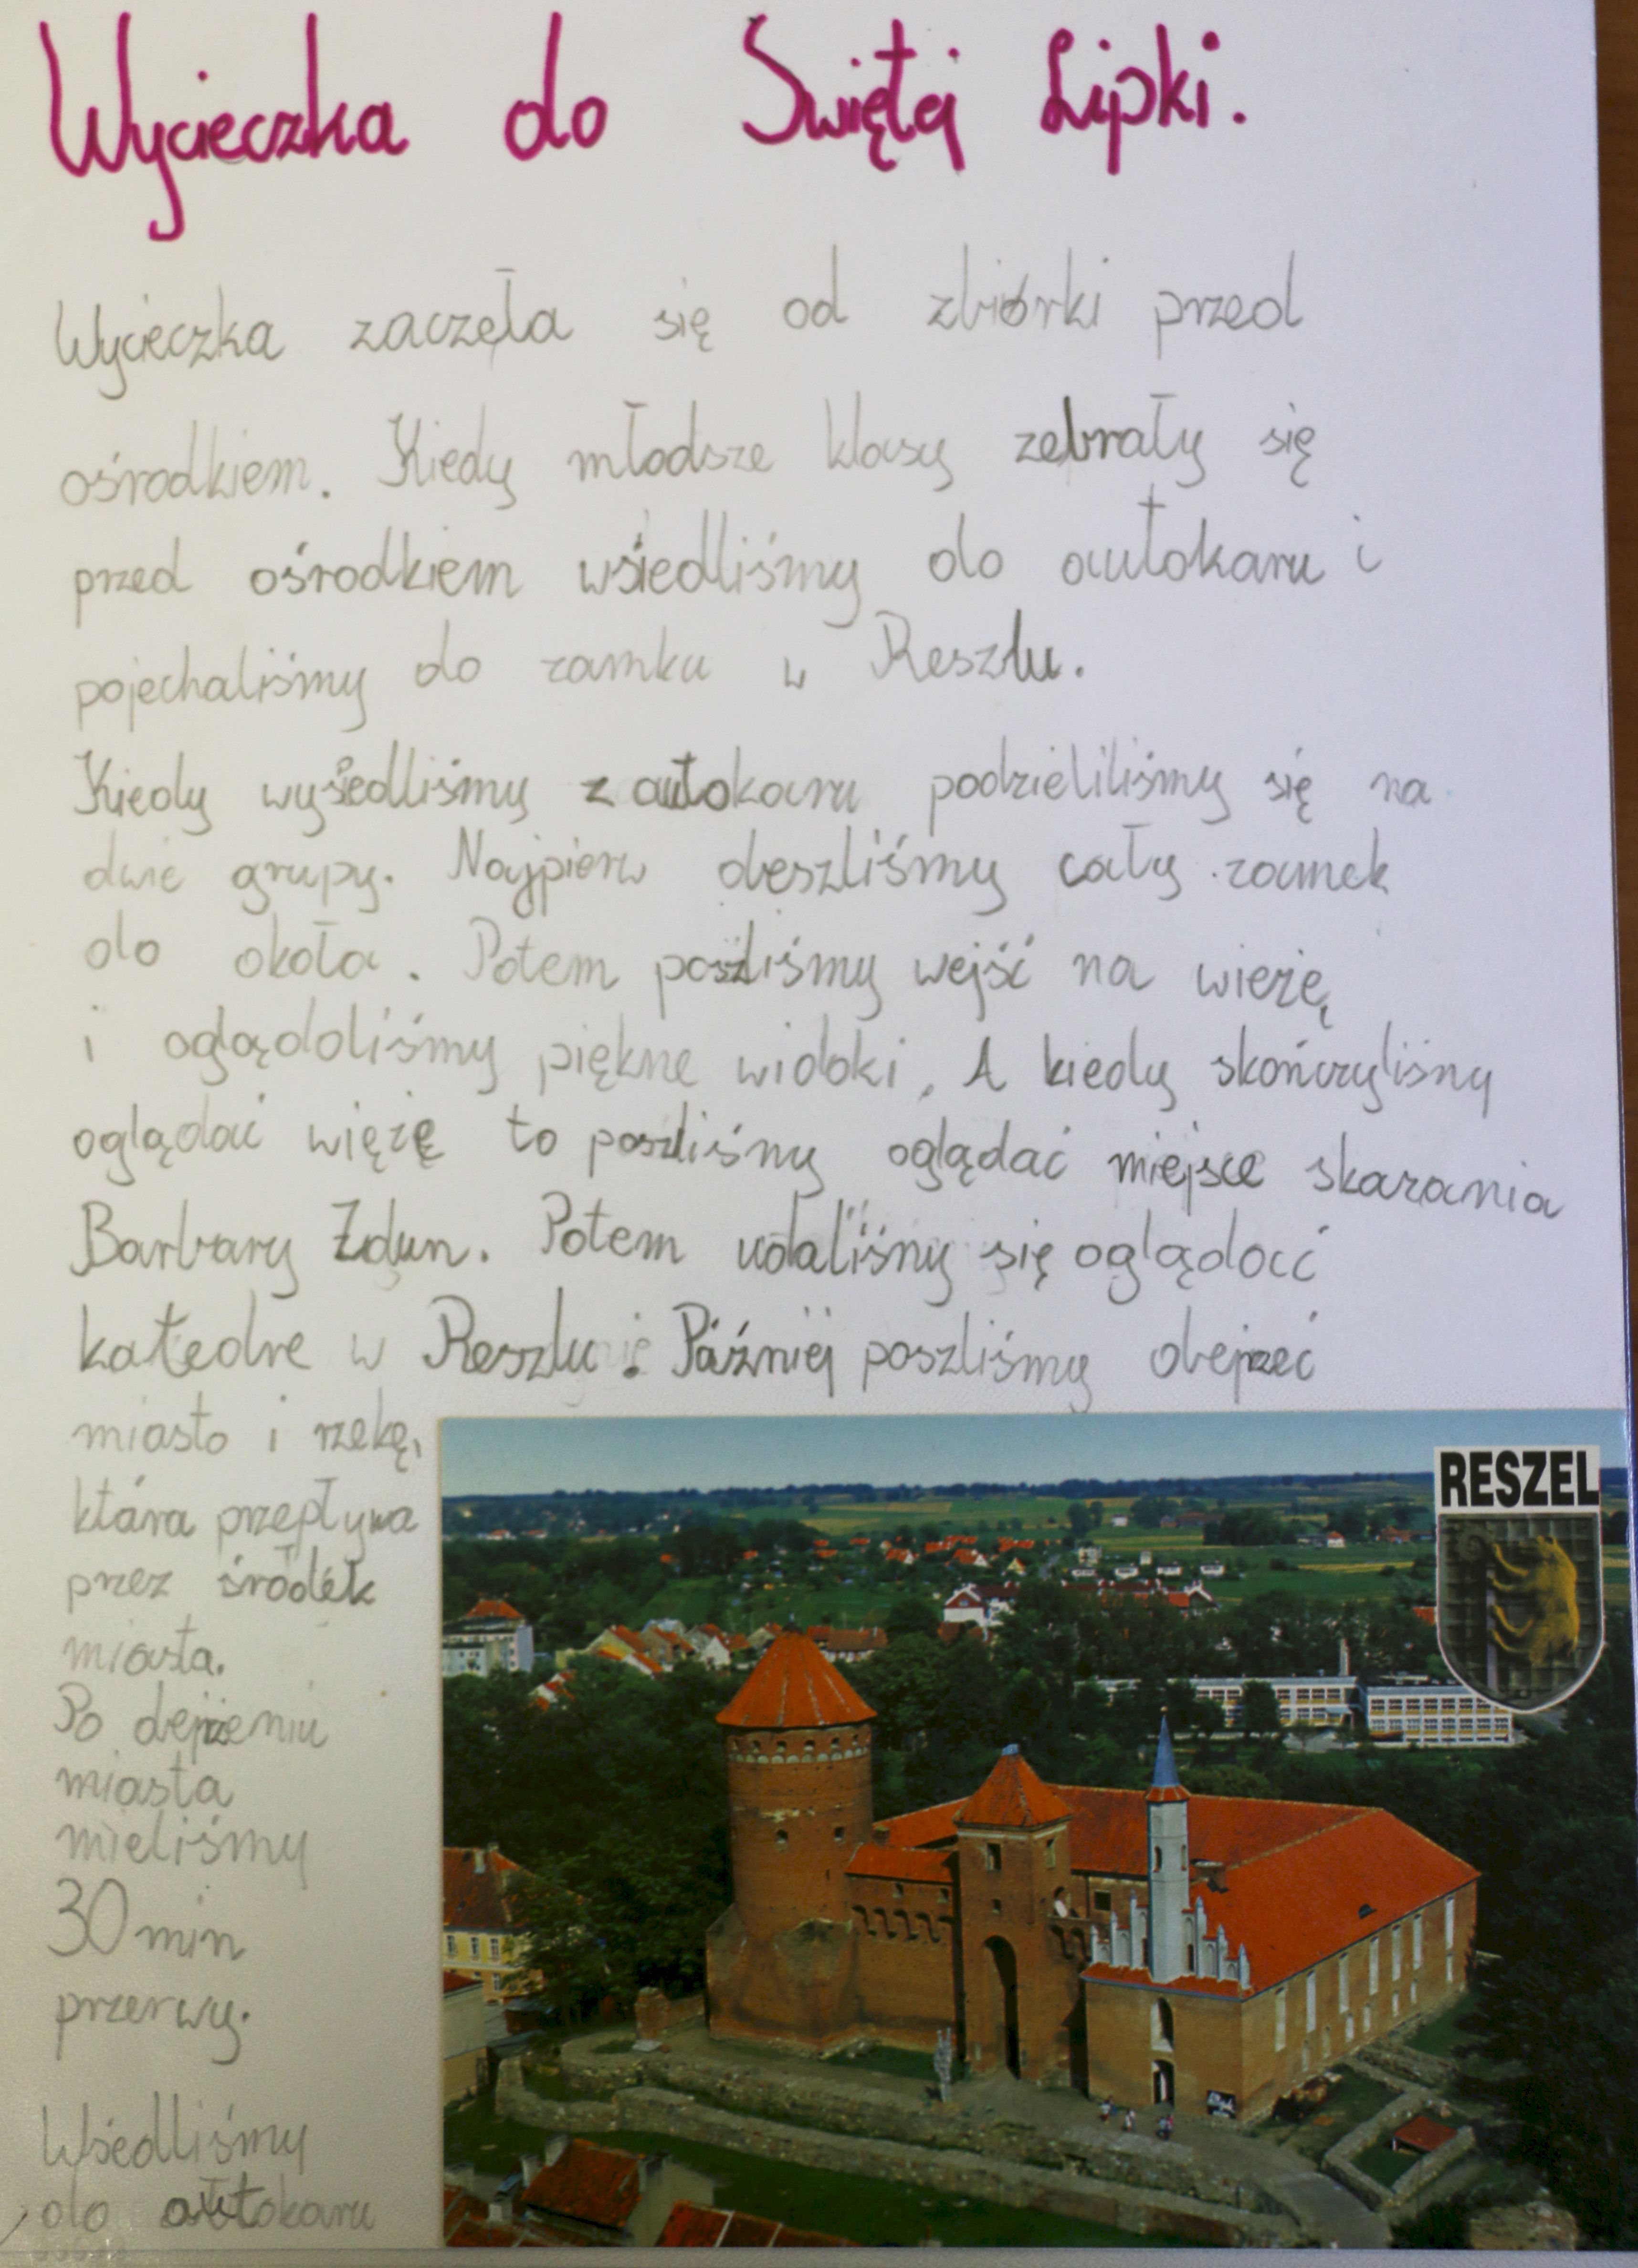 Wycieczka do Swiętej Lipki.
Wycieczka zaczęła się od zbiórki przed
ośrodkiem. Kiedy młodsze klasy zebrały się
przed ośrodkiem wsiedliśmy do autokaru i
pojechaliśmy do zamku w Reszlu.
Kiedy wysiedliśmy z autokaru podzieliliśmy się na
dwie grupy. Najpierw obeszliśmy cały zamek
do okoła. Potem poszliśmy wejść na wieżę
i oglądoliśmy piękne widoki. A kiedy skończyliśmy
oglądać więżę to poszliśmy oglądać miejsce skazania
Barbary Zdun. Potem udaliśmy się oglądać
katedre w Reszlu. Później poszliśmy obejrzeć
miasto i rzekę,
która przepływa
przez środek
miasta.
Po obejrzeniu
miasta
mieliśmy
30 min
przerwy.
Wsiedliśmy
do autokaru
RESZEL